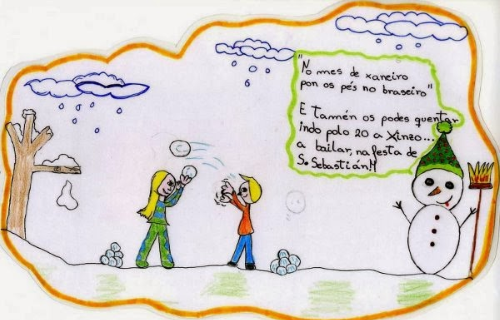 "No mes de xaneiro
pon os pés no braseiro"
E tamén os podes quentar
indo polo 20 a Xinzo...
a bailar, na festa de
S. Sebastián!!